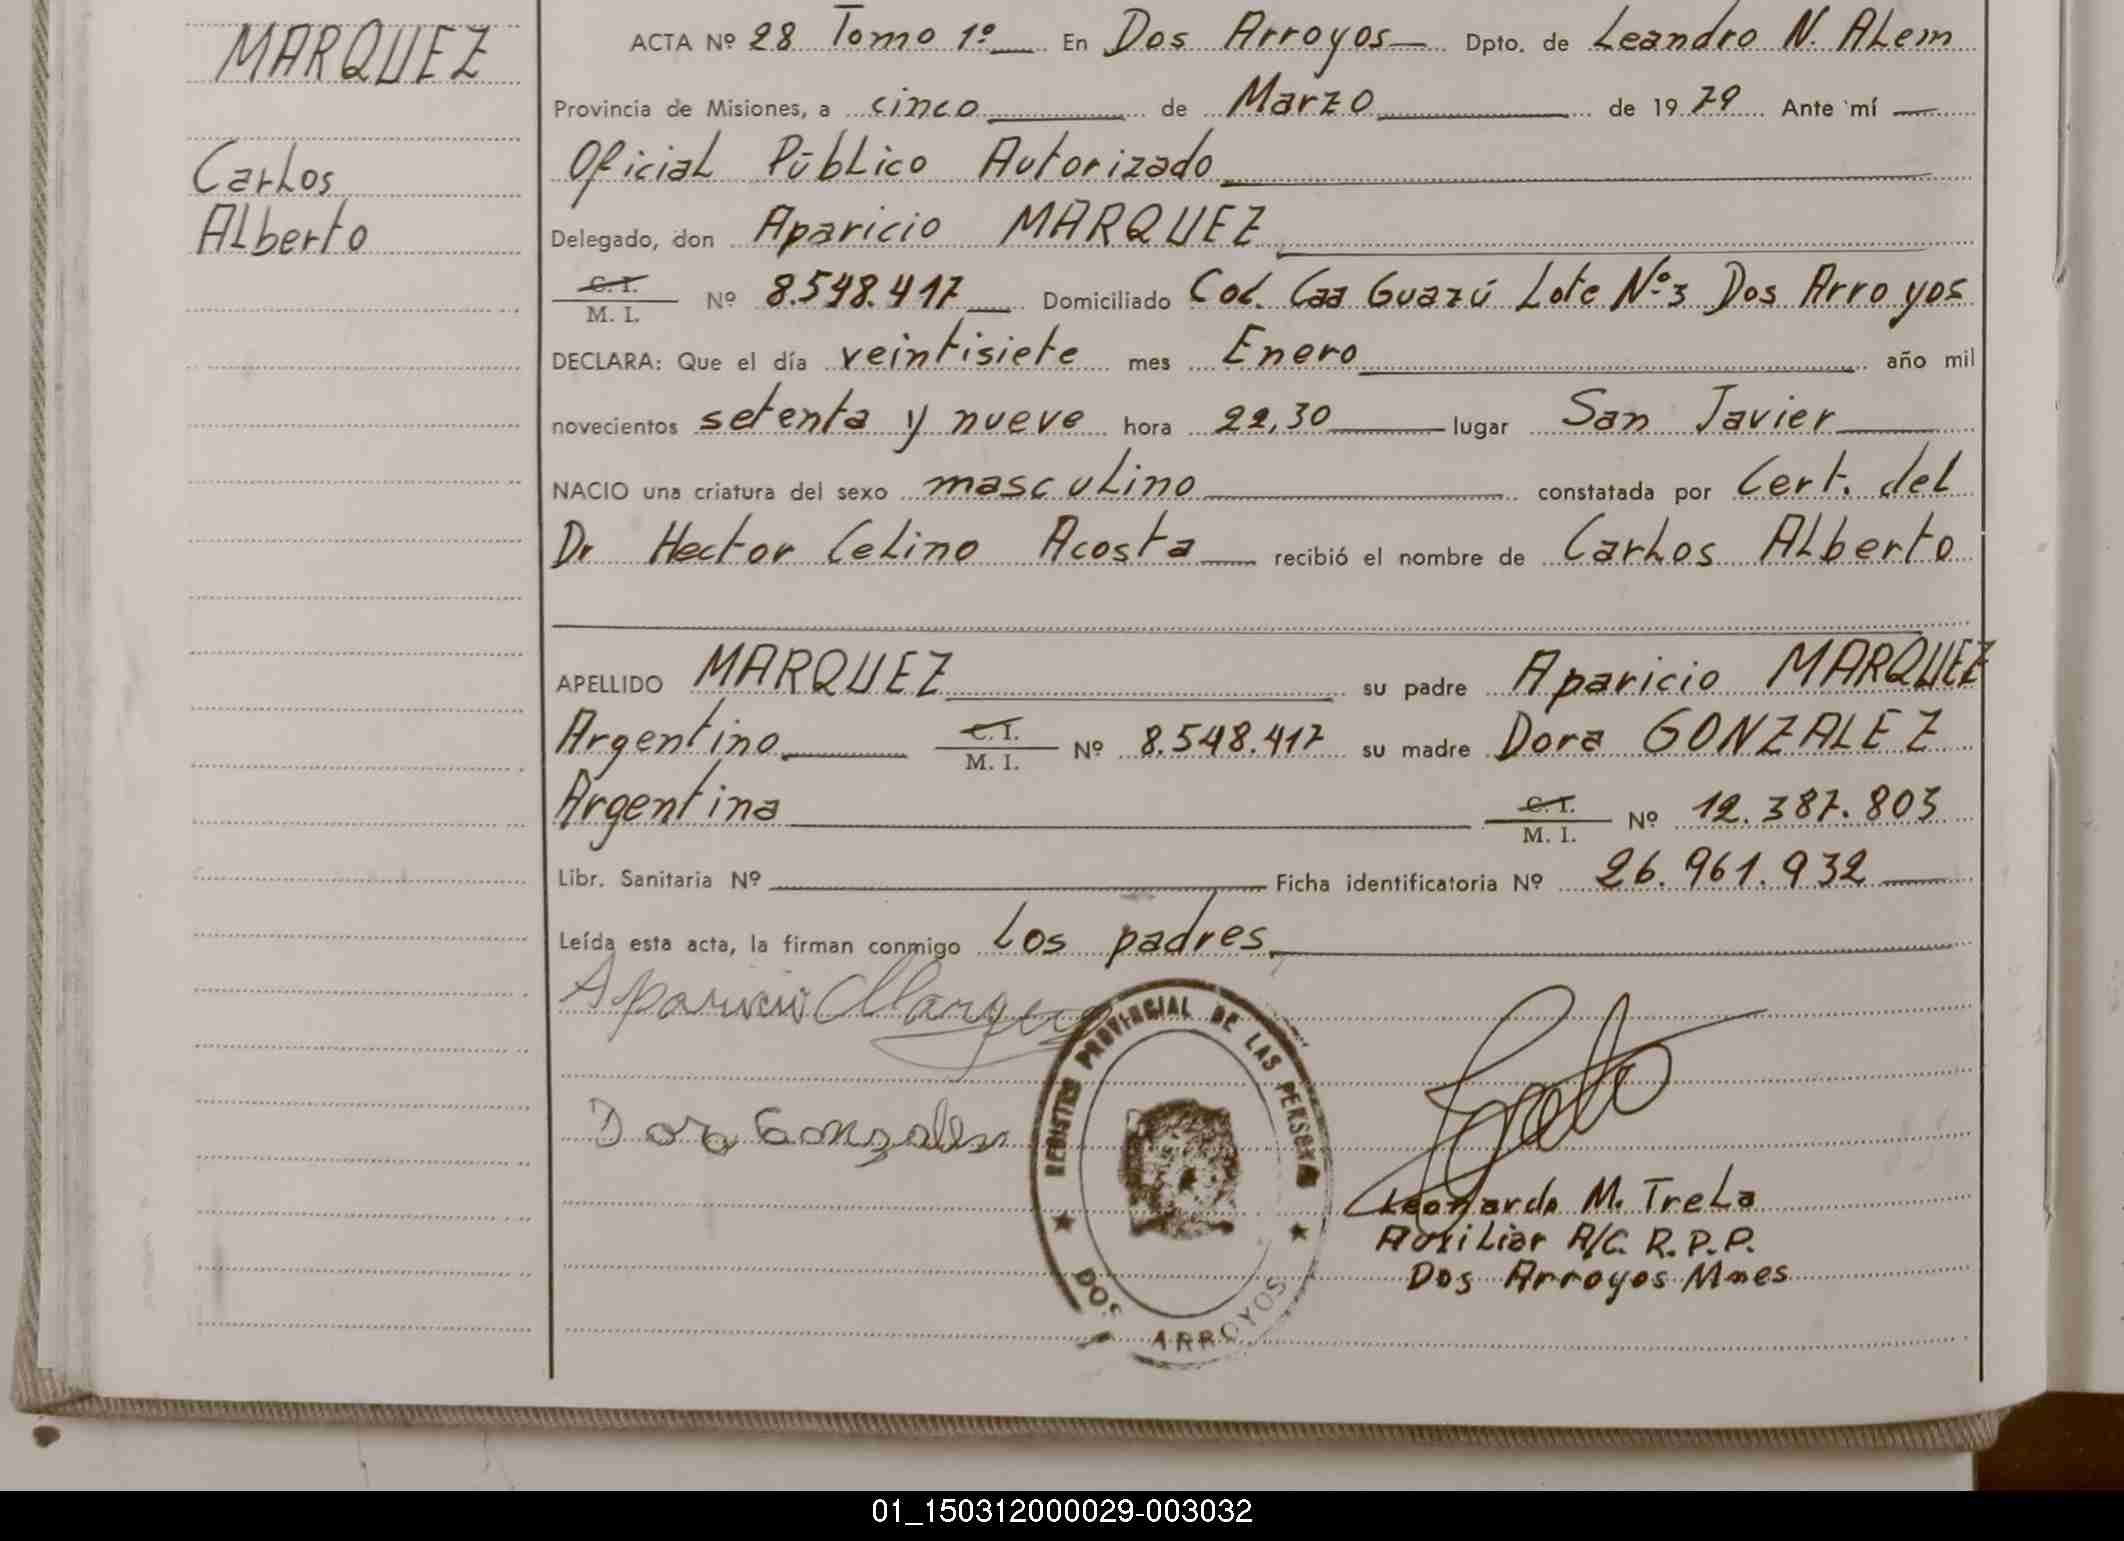 MARQUEZ
Carlos
Alberto
ACTA Nº 28 Tomo 1º En Dos Arroyos Dpto. de Leandro N. Alem
Provincia de Misiones, a cinco de Marzo de 1979 Ante mí
Oficial Público Autorizado
Delegado, don Aparicio MARQUEZ
C. I.
M. I. Nº 8.548.417 Domiciliado Col. Caa Guazú Lote Nº 3 Dos Arroyos
DECLARA: Que el día veintisiete mes Enero año mil
novecientos setenta y nueve hora 22,30 lugar San Javier
NACIO una criatura del sexo masculino constatada por Cert. del
Dr Hector Celino Acosta recibió el nombre de Carlos Alberto
APELLIDO MARQUEZ su padre Aparicio MARQUEZ
Argentino C. I. M. I. Nº 8.548.417 su madre Dora GONZALEZ
Argentina C. I. M. I. Nº 12.387.803
Libr. Sanitaria Nº Ficha identificatoria Nº 26.961.932
Leída esta acta, la firman conmigo los padres
Aparicio Marquez
Dora Gonzalez
REGISTRO PROVINCIAL DE LAS PERSONAS
DOS ARROYOS
Leonardo M. Trela
Auxiliar A/C. R.P.P.
Dos Arroyos Mnes
01_150312000029-003032